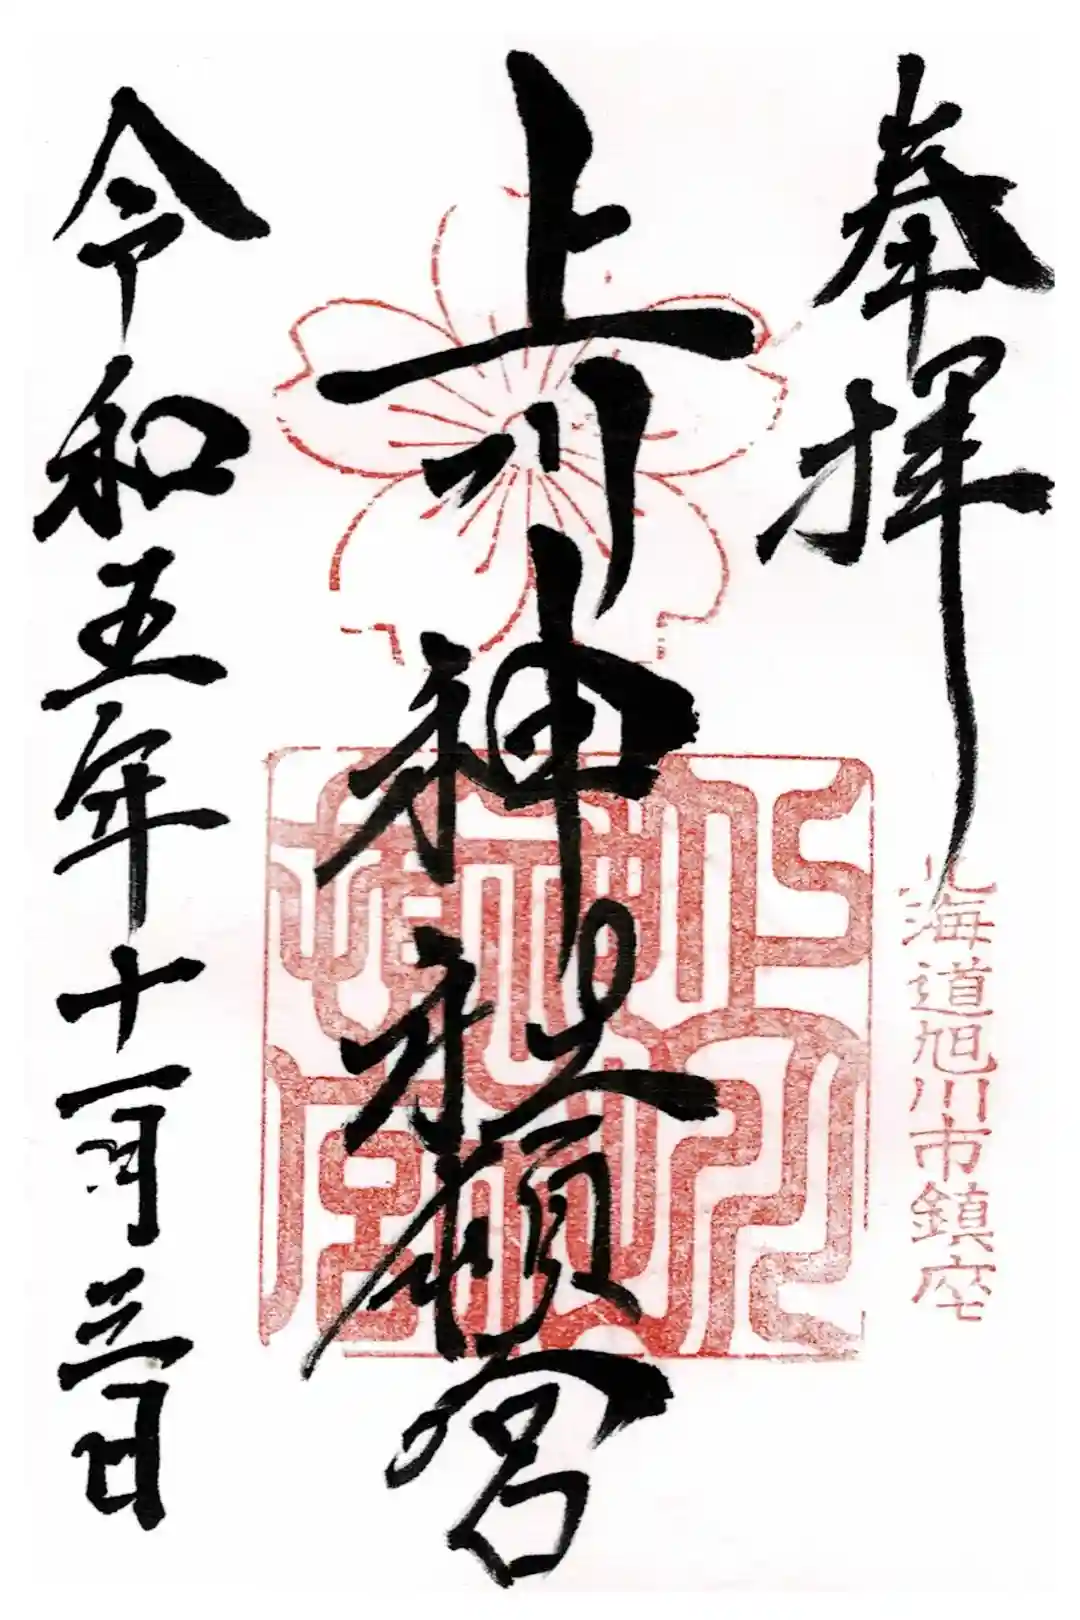 奉拝
北海道旭川市鎮座
上川神社頓宮
令和五年十一月三日